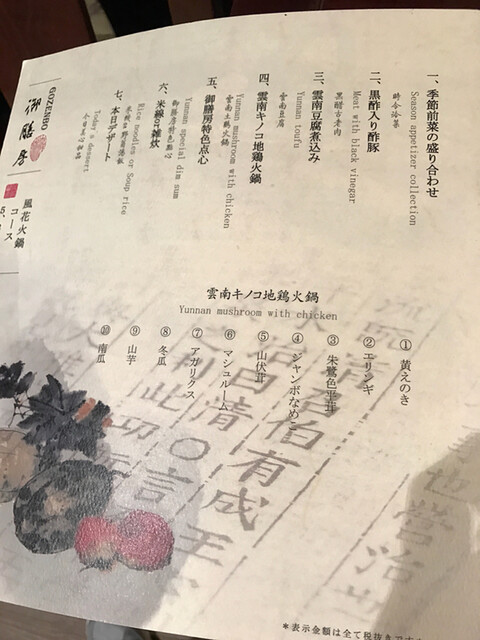 一、季節前菜の盛り合わせ
Season appetizer collection
時令冷菜
二、黒酢入り酢豚
Meat with black vinegar
黒醋古老肉
三、雲南豆腐煮込み
Yunnan toufu
雲南豆腐
四、雲南キノコ地鶏火鍋
Yunnan mushroom with chicken
雲南土鶏火鍋
五、御膳房特色点心
Yunnan special dim sum
御膳房特色點心
六、米線or雑炊
Rice noodles or Soup rice
七、本日デザート
Today's dessert
GOZENBO
御膳房
風花火鍋
コース
雲南キノコ地鶏火鍋
Yunnan mushroom with chicken
① 黄えのき
② エリンギ
③ 朱鷺色平茸
④ ジャンボなめこ
⑤ 山伏茸
⑥ マシュルーム
⑦ アガリクス
⑧ 冬瓜
⑨ 山芋
⑩ 南瓜
＊表示金額は全て税抜きです